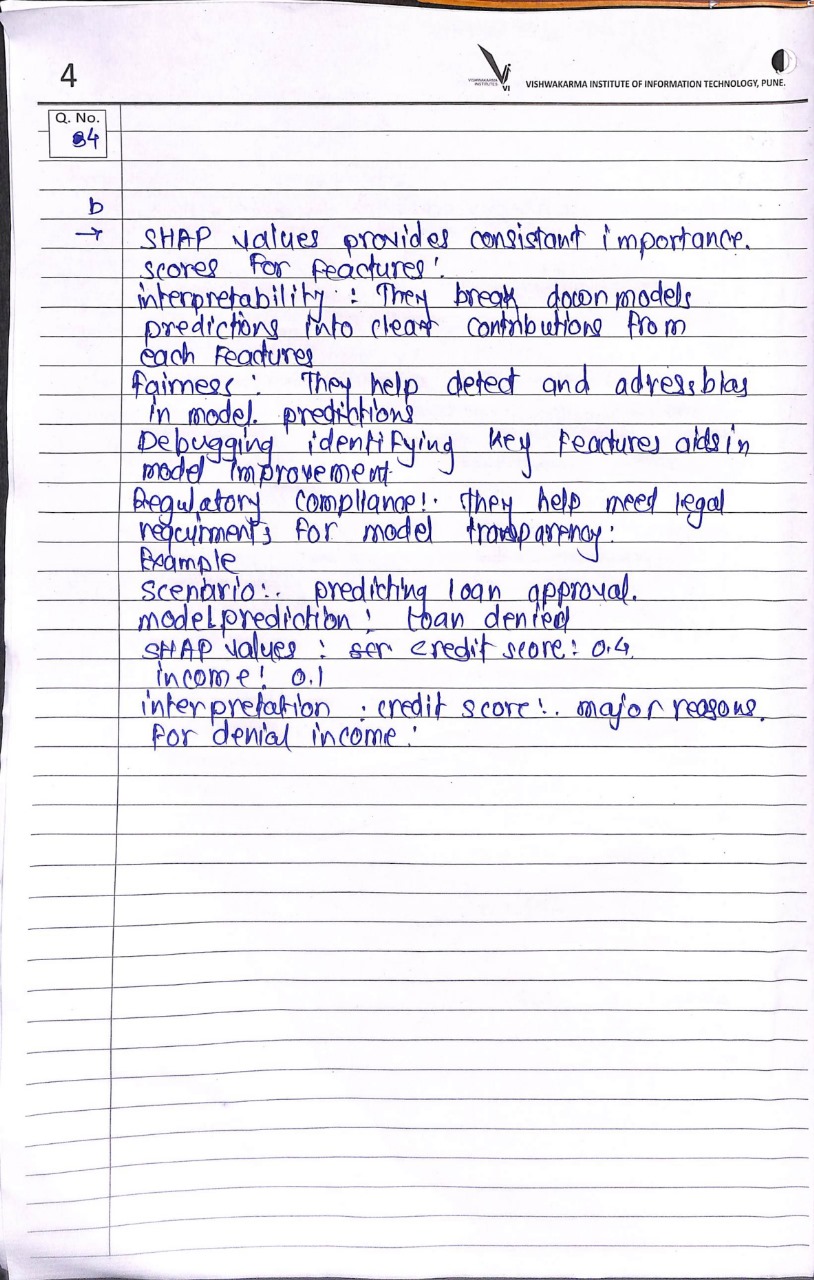 4
VISHWAKARMA INSTITUTES
VI
VISHWAKARMA INSTITUTE OF INFORMATION TECHNOLOGY, PUNE.
Q. No.
4
b
→ SHAP values provides consistant importance.
scores for feactures!
interpretability : They break down models
predictions into clear contributions from
each Feactures
fairness : They help detect and adress bias
in model. predichtions
Debugging identifying key Feactures aids in
model improvement.
Regulatory compliance!. They help meed legal
requirments for model transparency:
Example
Scenario:. predicting loan approval.
model prediction : Loan denied
SHAP values : credit score: 0.4.
income! 0.1
interpretation : credit score!. major reasons.
for denial income: